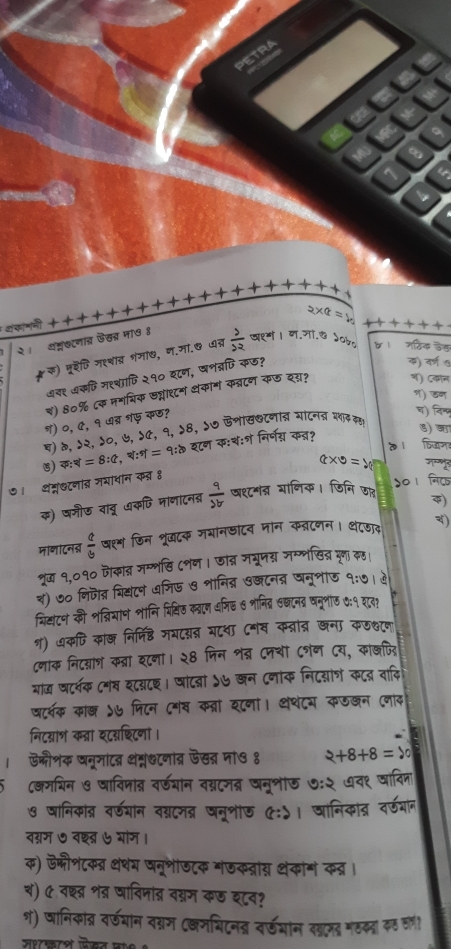 PETRA
২। প্রশ্নগুলোর উত্তর দাও :
২×৫ = ১০
ক) দুইটি সংখ্যার গসাগু, ল.সা.গু এর ১/১২ অংশ। ল.সা.গু ১০৮০
এবং একটি সংখ্যাটি ২১০ হলে, অপরটি কত?
খ) ৪০% কে দশমিক ভগ্নাংশে প্রকাশ করলে কত হয়?
গ) ০, ৫, ৭ এর গড় কত?
ঘ) ৯, ১২, ১০, ৬, ১৫, ৭, ১৪, ১৩ উপাত্তগুলোর মানের মধ্যক কত?
ঙ) ক:খ = ৪:৫, খ:গ = ৭:৯ হলে ক:খ:গ নির্ণয় কর?
৩। প্রশ্নগুলোর সমাধান কর :
৫×৩ = ১৫
ক) অসীত বাবু একটি দালানের ৭/১৮ অংশের মালিক। তিনি তার
দালানের ৫/৬ অংশ তিন পুত্রকে সমানভাবে দান করলেন। প্রত্যেক
পুত্র ৭,০৭০ টাকার সম্পত্তি পেল। তার সমুদয় সম্পত্তির মূল্য কত।
খ) ৩০ লিটার মিশ্রণে এসিড ও পানির ওজনের অনুপাত ৭:৩। ঐ
মিশ্রণে কী পরিমাণ পানি মিশ্রিত করলে এসিড ও পানির ওজনের অনুপাত ৩:৭ হবে?
গ) একটি কাজ নির্দিষ্ট সময়ের মধ্যে শেষ করার জন্য কতগুলো
লোক নিয়োগ করা হলো। ২৪ দিন পর দেখা গেল যে, কাজটির
মাত্র অর্ধেক শেষ হয়েছে। আরো ১৬ জন লোক নিয়োগ করে বাকি
অর্ধেক কাজ ১৬ দিনে শেষ করা হলো। প্রথমে কতজন লোক
নিয়োগ করা হয়েছিলো।
উদ্দীপক অনুসারে প্রশ্নগুলোর উত্তর দাও :
২+৪+৪ = ১০
জেসমিন ও আবিদার বর্তমান বয়সের অনুপাত ৩:২ এবং আবিদা
ও আনিকার বর্তমান বয়সের অনুপাত ৫:১। আনিকার বর্তমান
বয়স ৩ বছর ৬ মাস।
ক) উদ্দীপকের প্রথম অনুপাতকে শতকরায় প্রকাশ কর।
খ) ৫ বছর পর আবিদার বয়স কত হবে?
গ) আনিকার বর্তমান বয়স জেসমিনের বর্তমান বয়সের শতকরা কত হবে?
৮।
ক)
খ)
গ)
ঘ)
ঙ)
৯।
১০।
ক)
খ)